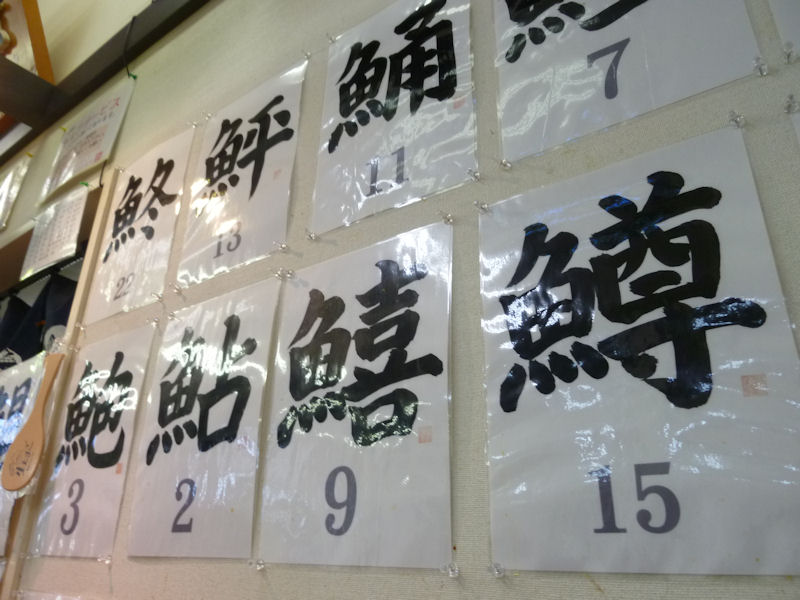 鮗
22
鮃
13
鯒
11
7
鮑
3
鮎
2
鱚
9
鱒
15